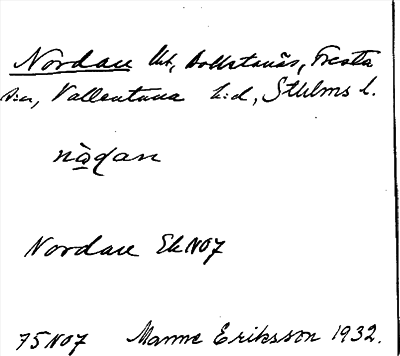 Nordan Ut, Bollstanäs, Fresta
sn, Vallentuna h:d, Sthlms l.
nǫ̀ḍan
Nordan Ek N07
75 N07 Manne Eriksson 1932.